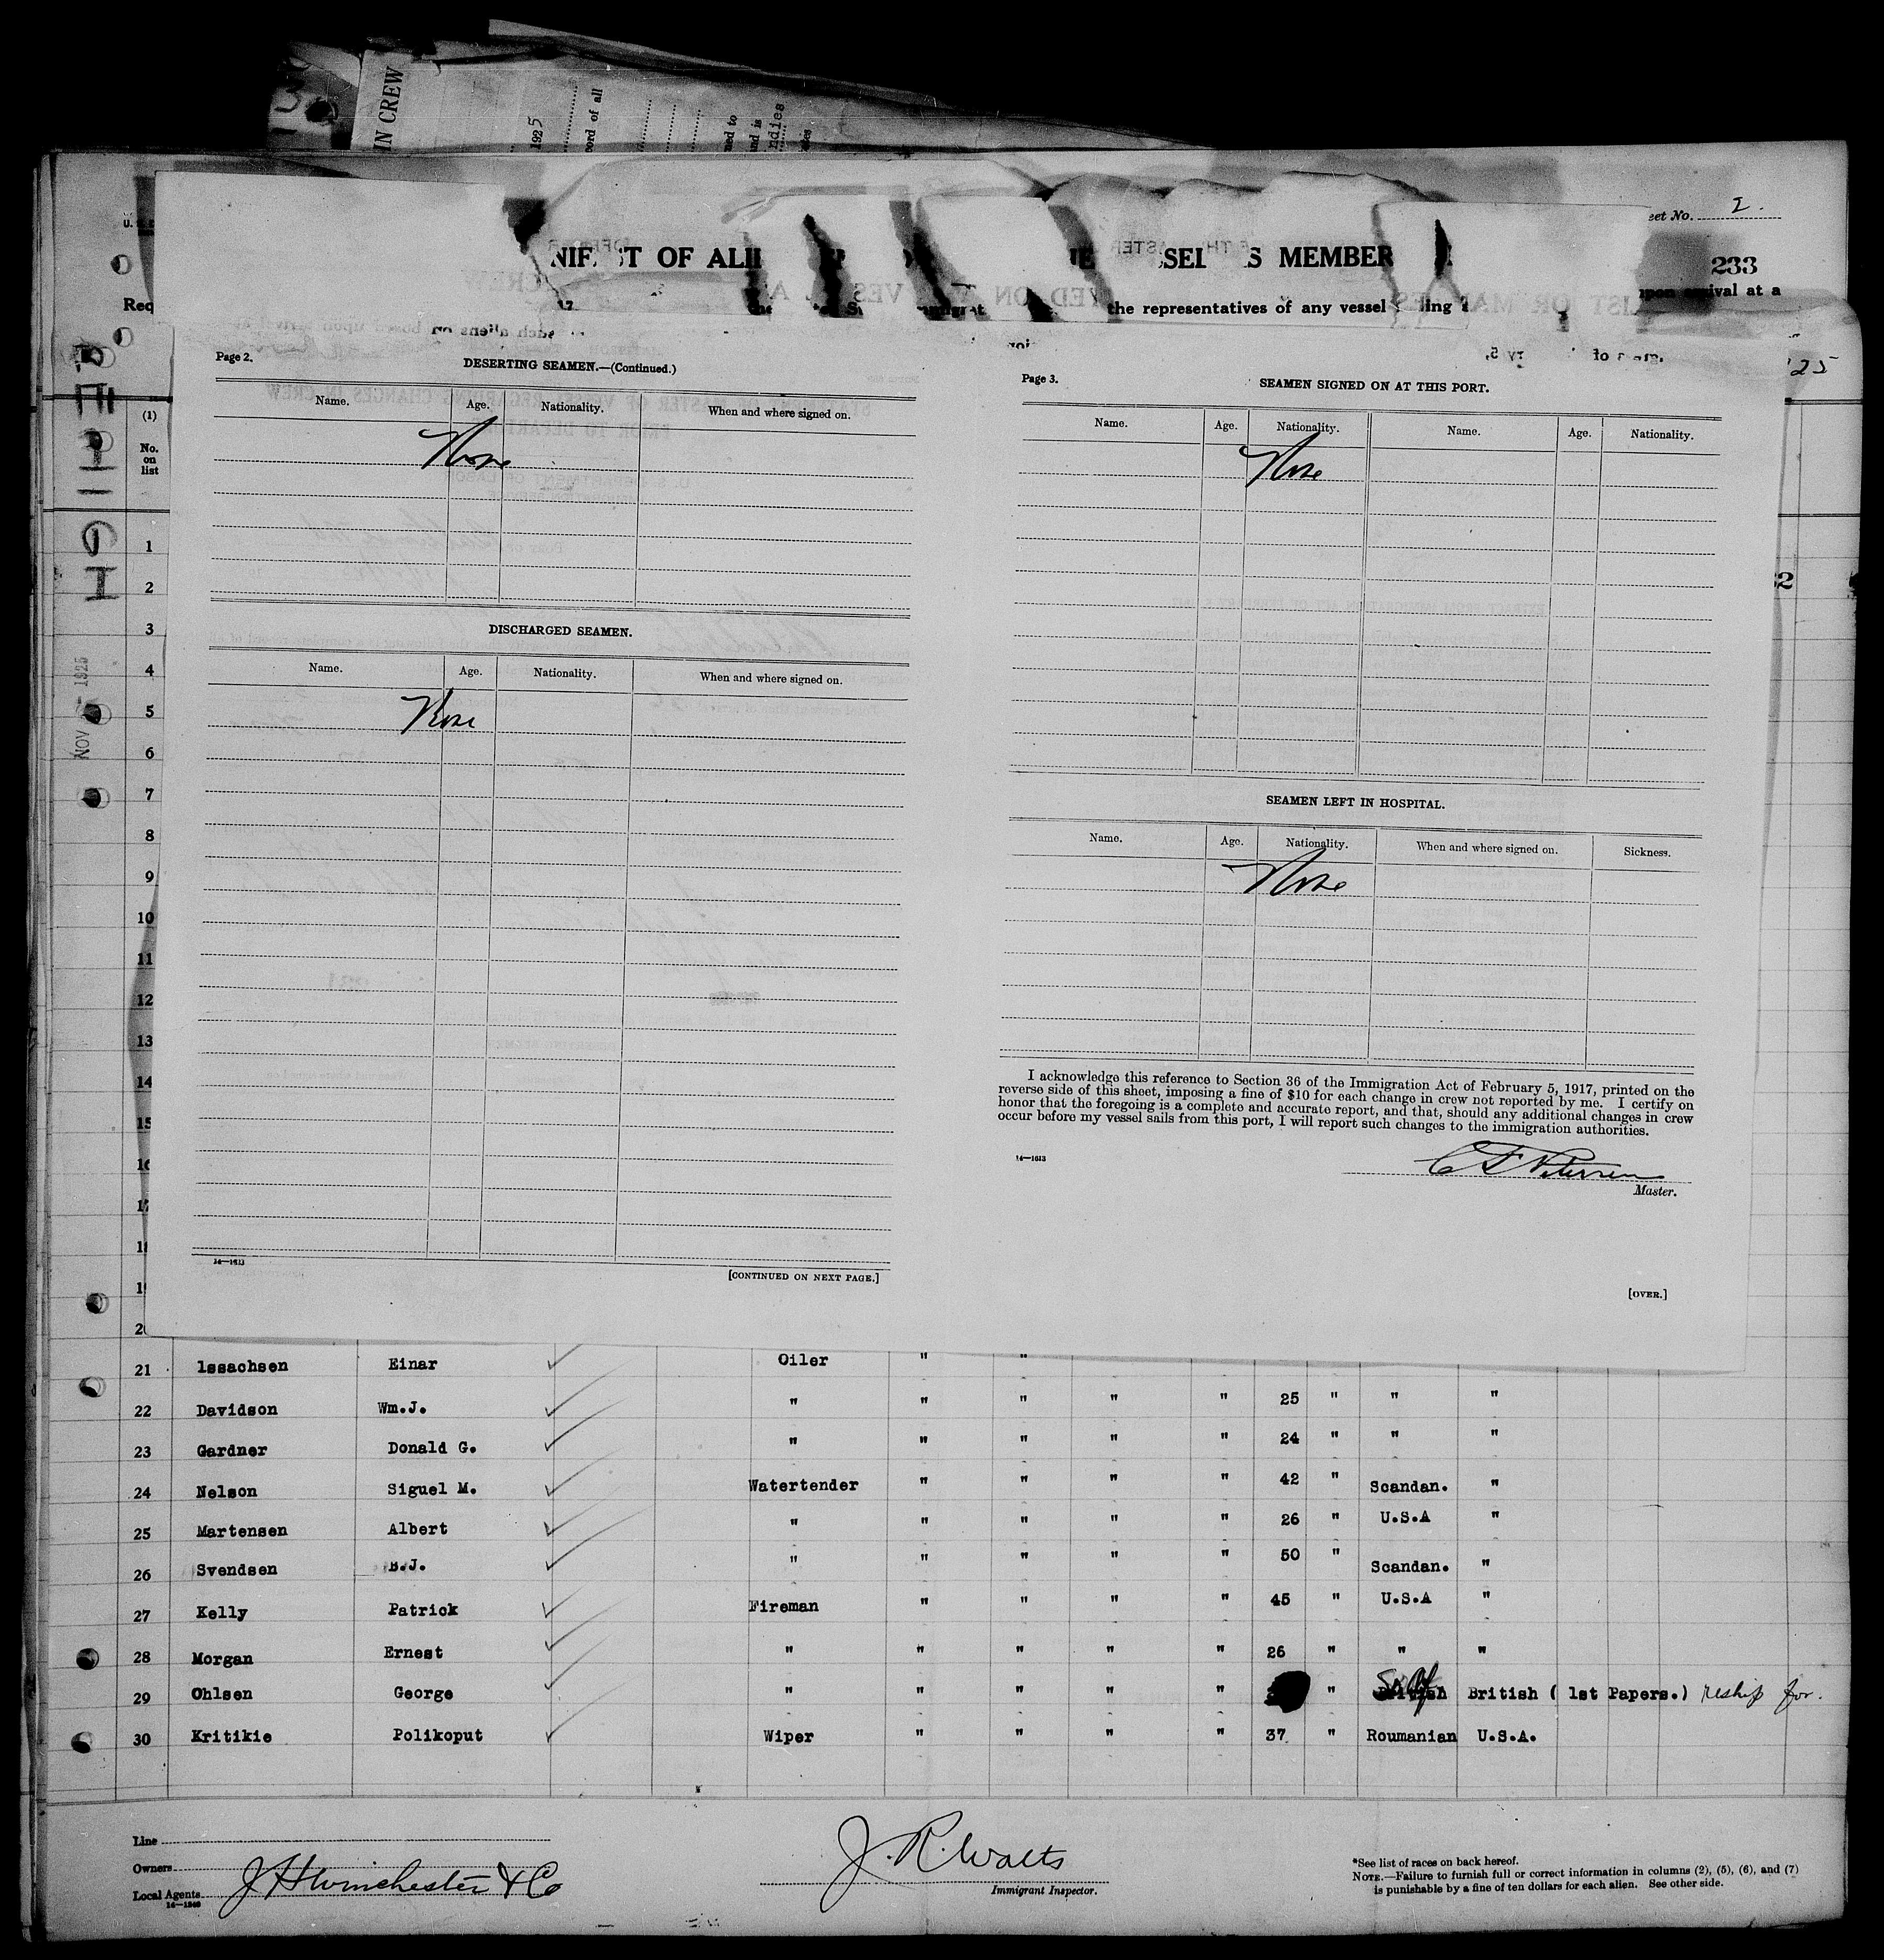 IN CREW
1925
ord of all
ned to
und is
ndies
eet No. 2.
NIF ST OF ALI SSEL S MEMBER
233
upon arrival at a
Req
the representatives of any vessel
25
Page 2.
DESERTING SEAMEN.—(Continued.)
Name. Age. Nationality. When and where signed on.
None
DISCHARGED SEAMEN.
Name. Age. Nationality. When and where signed on.
None
14—1613
[CONTINUED ON NEXT PAGE.]
Page 3.
SEAMEN SIGNED ON AT THIS PORT.
Name. Age. Nationality. Name. Age. Nationality.
None
SEAMEN LEFT IN HOSPITAL.
Name. Age. Nationality. When and where signed on. Sickness.
None
I acknowledge this reference to Section 36 of the Immigration Act of February 5, 1917, printed on the
reverse side of this sheet, imposing a fine of $10 for each change in crew not reported by me. I certify on
honor that the foregoing is a complete and accurate report, and that, should any additional changes in crew
occur before my vessel sails from this port, I will report such changes to the immigration authorities.
14—1613
C F Petersen
Master.
[OVER.]
(1)
No.
on
list
1
2
3
4
5
6
7
8
9
10
11
12
13
14
15
NOV 1925
21 Issachsen Einar Oiler " "
22 Davidson Wm.J. " " " " " 25 " " "
23 Gardner Donald G. " " " " " 24 " " "
24 Nelson Siguel M. Watertender " " " " 42 " Scandan. "
25 Martensen Albert " " " " " 26 " U.S.A "
26 Svendsen B.J. " " " " " 50 " Scandan. "
27 Kelly Patrick Fireman " " " " 45 " U.S.A "
28 Morgan Ernest " " " " " 26 " " "
29 Ohlsen George " " " " " " British British ( 1st Papers.) reship for.
30 Kritikie Polikoput Wiper " " " " 37 " Roumanian U.S.A.
Line
Owners
Local Agents J H Winchester & Co
14—1240
J. R. Watts
Immigrant Inspector.
*See list of races on back hereof.
NOTE.—Failure to furnish full or correct information in columns (2), (5), (6), and (7)
is punishable by a fine of ten dollars for each alien. See other side.